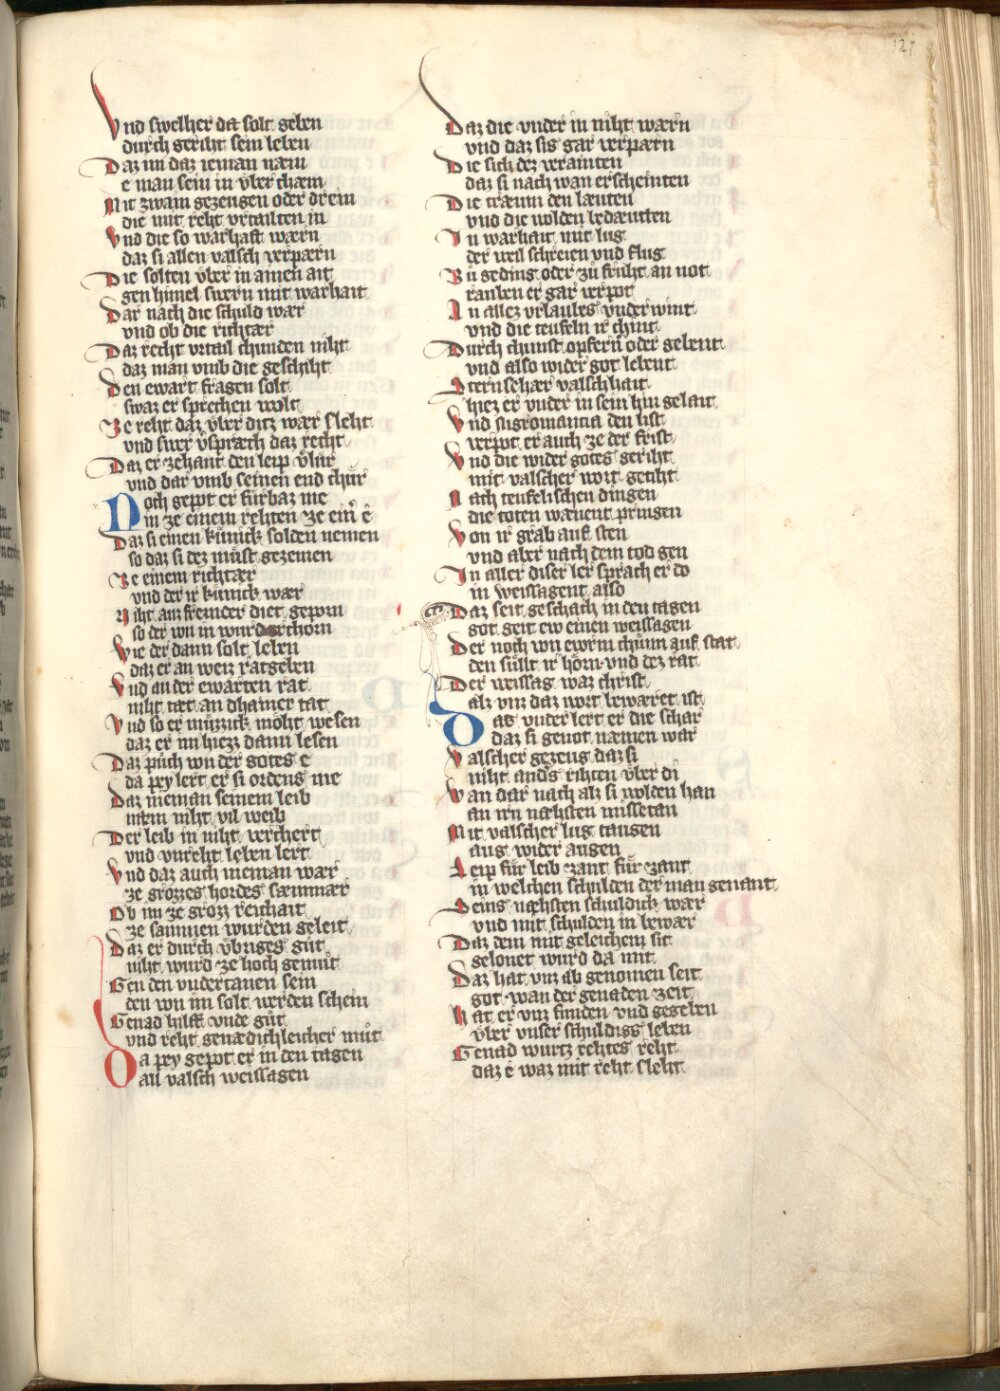 127
Vnd swelher da solt geben
durch geriht sein leben
Daz im daz ieman næm
e man sein in vber chæm
Mit zwain gezeugen oder drein
die mit reht vrtailten in
Vnd die so warhaft wærn
daz si allen valsch verpærn
Die solten vber in ainen ait
gen himel swern mit warhait
Dar nach die schuld wær
vnd ob die richtær
Daz recht vrtail chunden niht
daz man vmb die geschiht
Den ewart fragen solt
swaz er sprechen wolt
Ze reht daz vber ditz wær sleht
vnd swer v̂spræch daz recht
Daz er zehant den leip v̂lur
vnd dar vmb seinen end chür
Noch gepot er fürbaz me
in ze einem rehten ze ein̄ e
Daz si einen künick solden nemen
so daz si dez müst gezemen
Ze einem richtær
vnd der ir künick wær
Niht ain fremder diet geporn
so der von in wurd erchorn
Wie der dann solt leben
daz er an weiz ratgeben
Vnd an der ewarten rat
niht tæt an dhainer tat
Vnd so er müzzick möht wesen
daz er im hiezz dann lesen
Daz püch von der gotes e
da pey lert er si ordens me
Daz nieman seinem leib
næm niht vil weib
Der leib in niht verchert
vnd vnreht leben lert
Vnd daz auch nieman wær
ze grozzes hordes sæmnær
Ob im ze groz reichait
ze samnen wurden geleit
Daz er durch vbriges güt
niht wurd ze hoch gemüt
Gen den vndertanen sein
den von im solt werden schein
Genad hilff vnde güt
vnd reht genædichleicher müt
Da pey gepot er in den tagen
an valsch weissagen
Daz die vnder in niht wærn
vnd daz sis gar verpærn
Die sich dez verainten
daz si nach wan erscheinten
Die træum den læuten
vnd die wolden bedæutten
In warhait mit lug
der veil schreien vnd flug
Zu geding oder zü früht an not
rauben er gar verpot
An allez vrlaubes vnderwint
vnd die teufeln ir chint
Durch chunst opfern oder gelent
vnd also wider got lebent
Sternseher valschhait
hiez er vnder in sein hin geleit
Vnd nigromantia den list
verpot er auch ze der frist
Vnd die wider gotes geriht
mit valscher wort getiht
Nach teufelischen dingen
die toten wænent pringen
Von ir grab auf sten
vnd aber nach dem tod gen
In aller diser ler sprach er do
in weissagent also
Daz seit geschach in den tagen
got geit ew einen weissagen
Der noch von ewrm chünn auf stat
den süllt ir hörn vnd dez rat
Der weissag waz christ
als vns daz wort bewæret ist
Dar vnder lert er die schar
daz si genot næmen war
Valscher gezeug daz si
niht anders rihten vber di
Wan dar nach als si wolden han
an irn næhsten missetan
Mit valscher lug taugen
aug wider augen
Leip für leib zant für zant
in welchen schulden der man genant
Seins næhsten schuldich wær
vnd mit schulden in bewær
Daz dem mit geleichem sit
gelonet wurd da mit
Daz hat vns ab genomen seit
got wan der genaden zeit
Hat er vns funden vnd gegeben
vber vnser schuldigs leben
Genad wurtz rehtes reht
daz e waz mit reht sleht